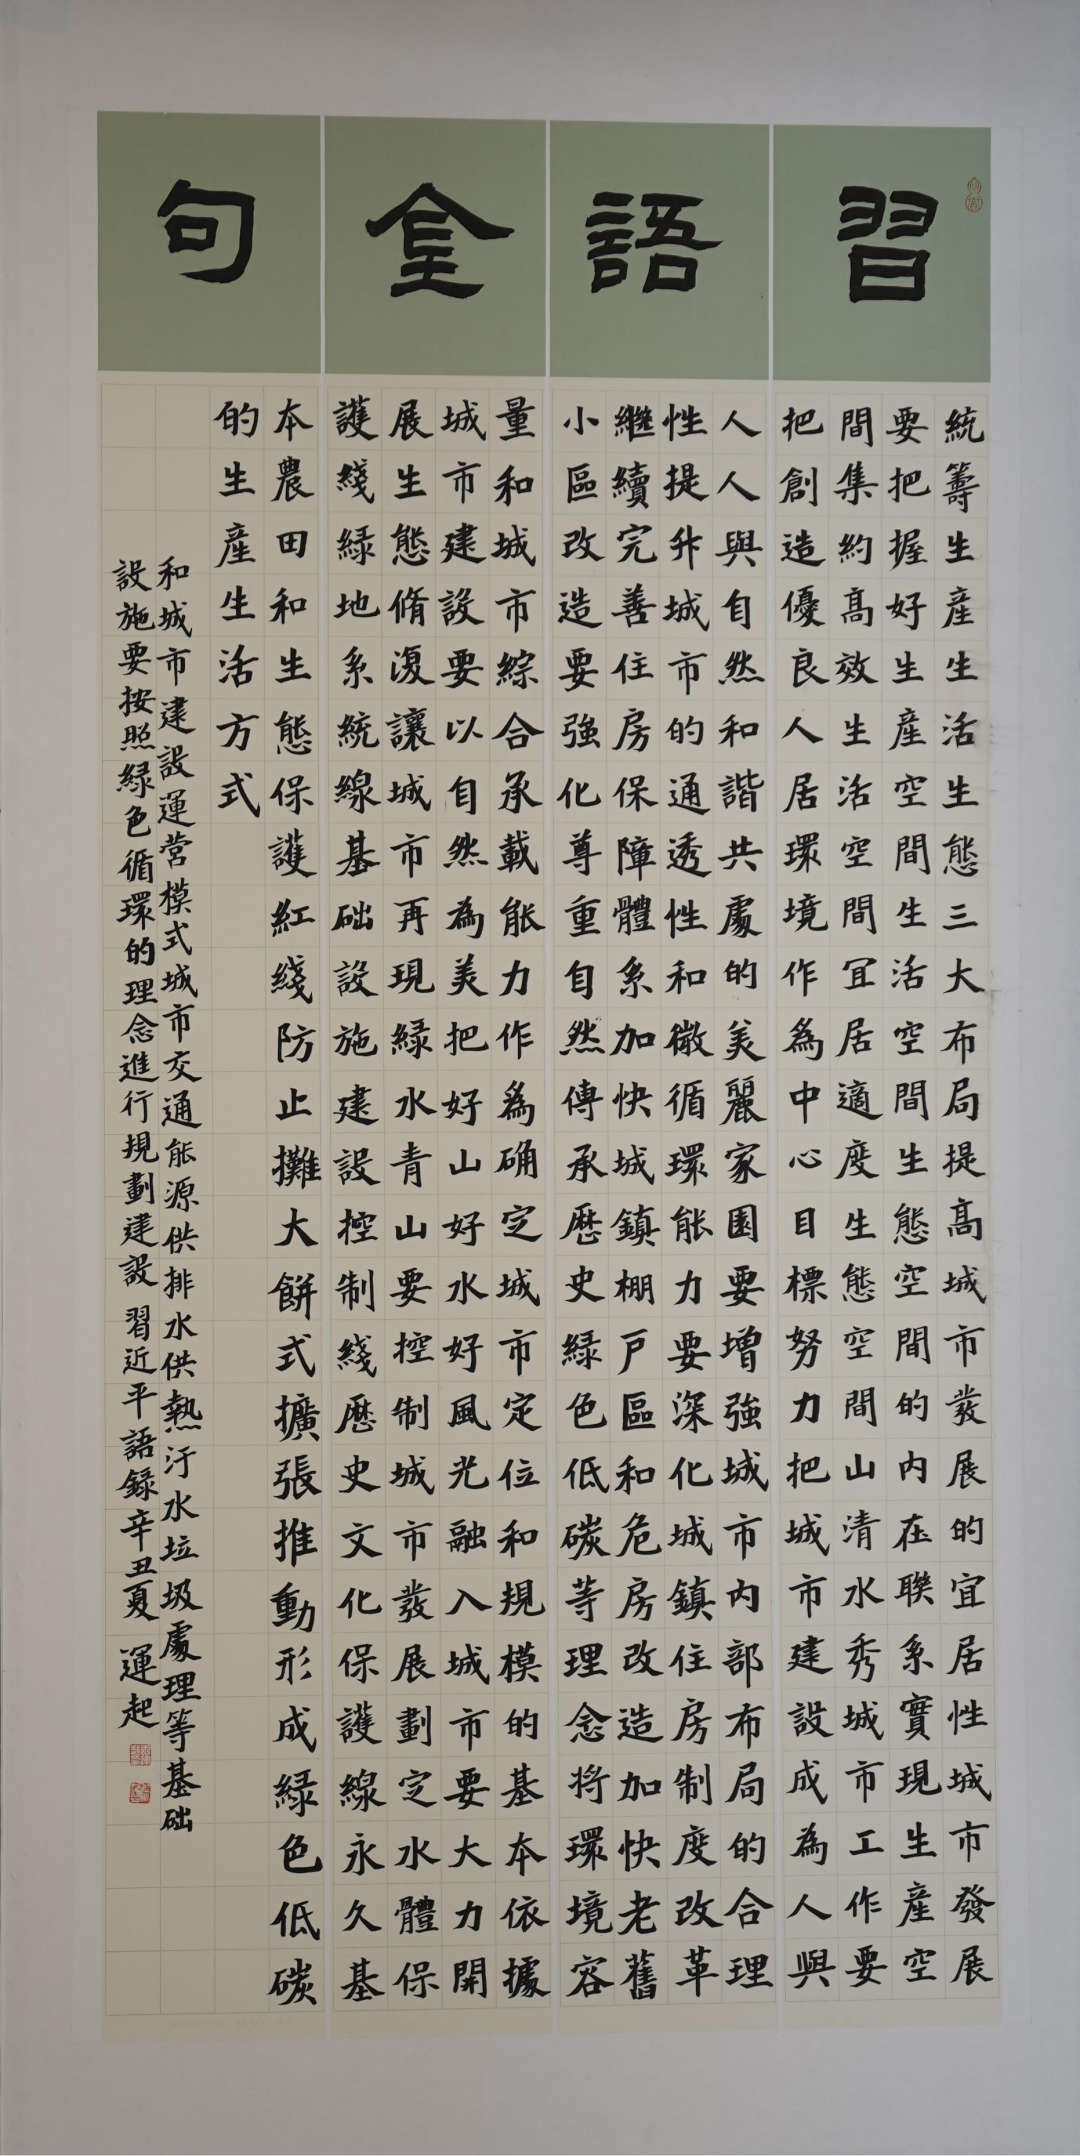 習語金句
統籌生産生活生態三大布局提髙城市裝展的宜居性城市發展
要把握好生産空間生活空間生態空間的内在聯系實現生産空
間集約髙效生活空間宜居適度生態空間山清水秀城市工作要
把創造優良人居環境作爲中心目標努力把城市建設成為人與
人人與自然和諧共處的美麗家園要增強城市内部布局的合理
性提升城市的通透性和微循環能力要深化城鎮住房制度改革
繼續完善住房保障體系加快城鎮棚戸區和危房改造加快老舊
小區改造要強化尊重自然傳承歷史緑色低碳等理念将環境容
量和城市綜合承載能力作爲确定城市定位和規模的基本依據
城市建設要以自然為美把好山好水好風光融入城市要大力開
展生態脩復讓城市再現緑水青山要控制城市裝展劃定水體保
護綫緑地系統線基础設施建設控制綫歷史文化保護線永久基
本農田和生態保護紅綫防止攤大餅式擴張推動形成緑色低碳
的生産生活方式
和城市建設運营模式城市交通能源供排水供熱汙水垃圾處理等基础
設施要按照緑色循環的理念進行規劃建設 習近平語錄辛丑夏 運起